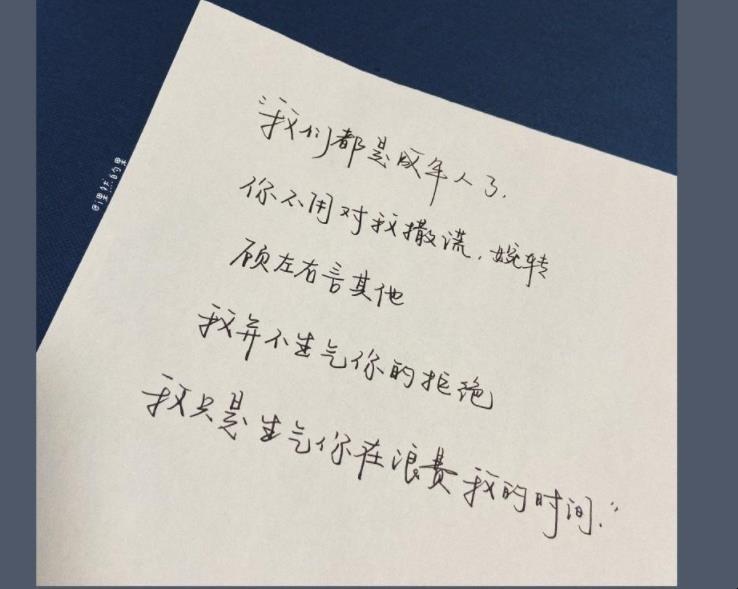 "我们都是成年人了.
你不用对我撒谎，婉转
顾左右言其他
我并不生气你的拒绝
我只是生气你在浪费我的时间."